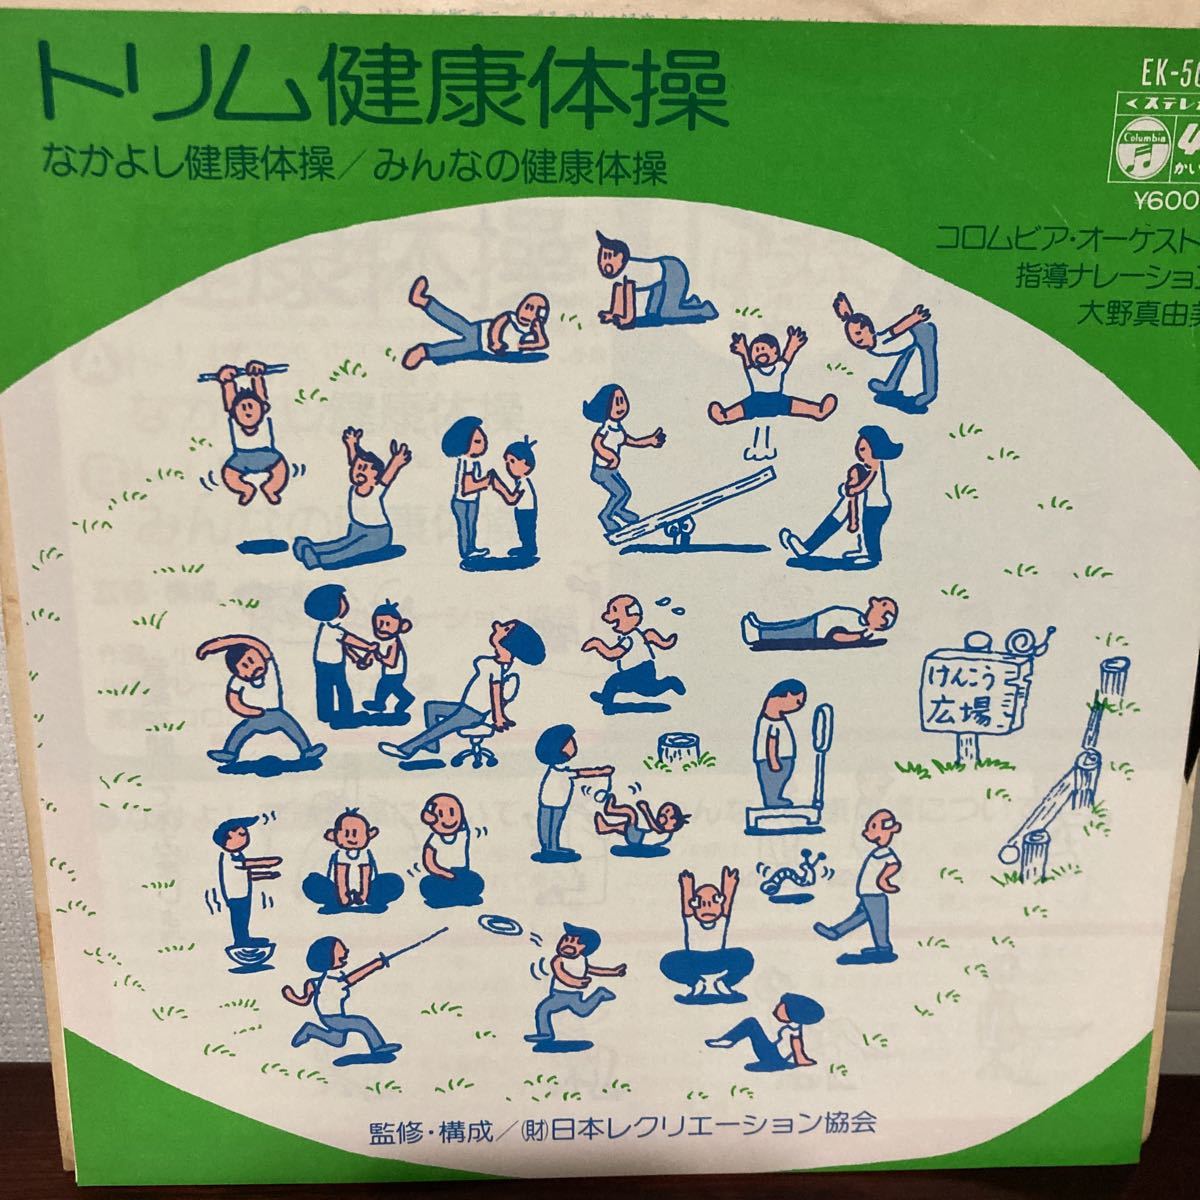 トリム健康体操
なかよし健康体操／みんなの健康体操
EK-56
<ステレオ
Columbia
4
かい
¥600
コロムビア・オーケスト
指導ナレーション
大野真由美
けんこう
広場
監修・構成／(財)日本レクリエーション協会